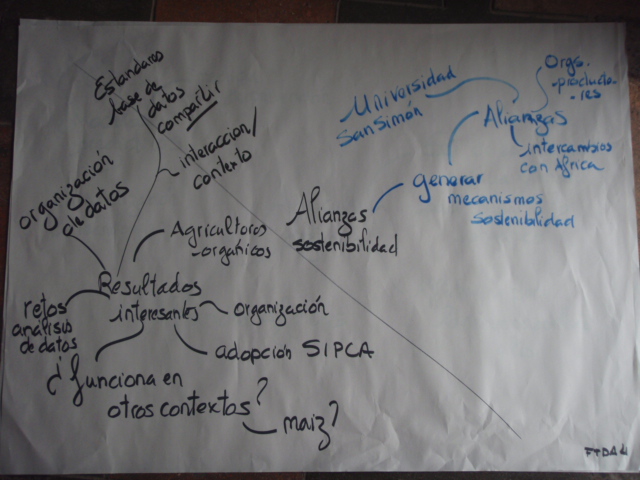 Estandares
base de
datos
compartir
interaccion/
contexto
organización
de datos
Agricultores
-organicos
Resultados
interesantes
retos
análisis
de datos
organización
adopción SIPCA
¿funciona en
otros contextos?
maiz?
Alianzas
sostenibilidad
Universidad
San Simón
Alianzas
Orgs.
-producto-
-res
intercambios
con Africa
generar
mecanismos
sostenibilidad